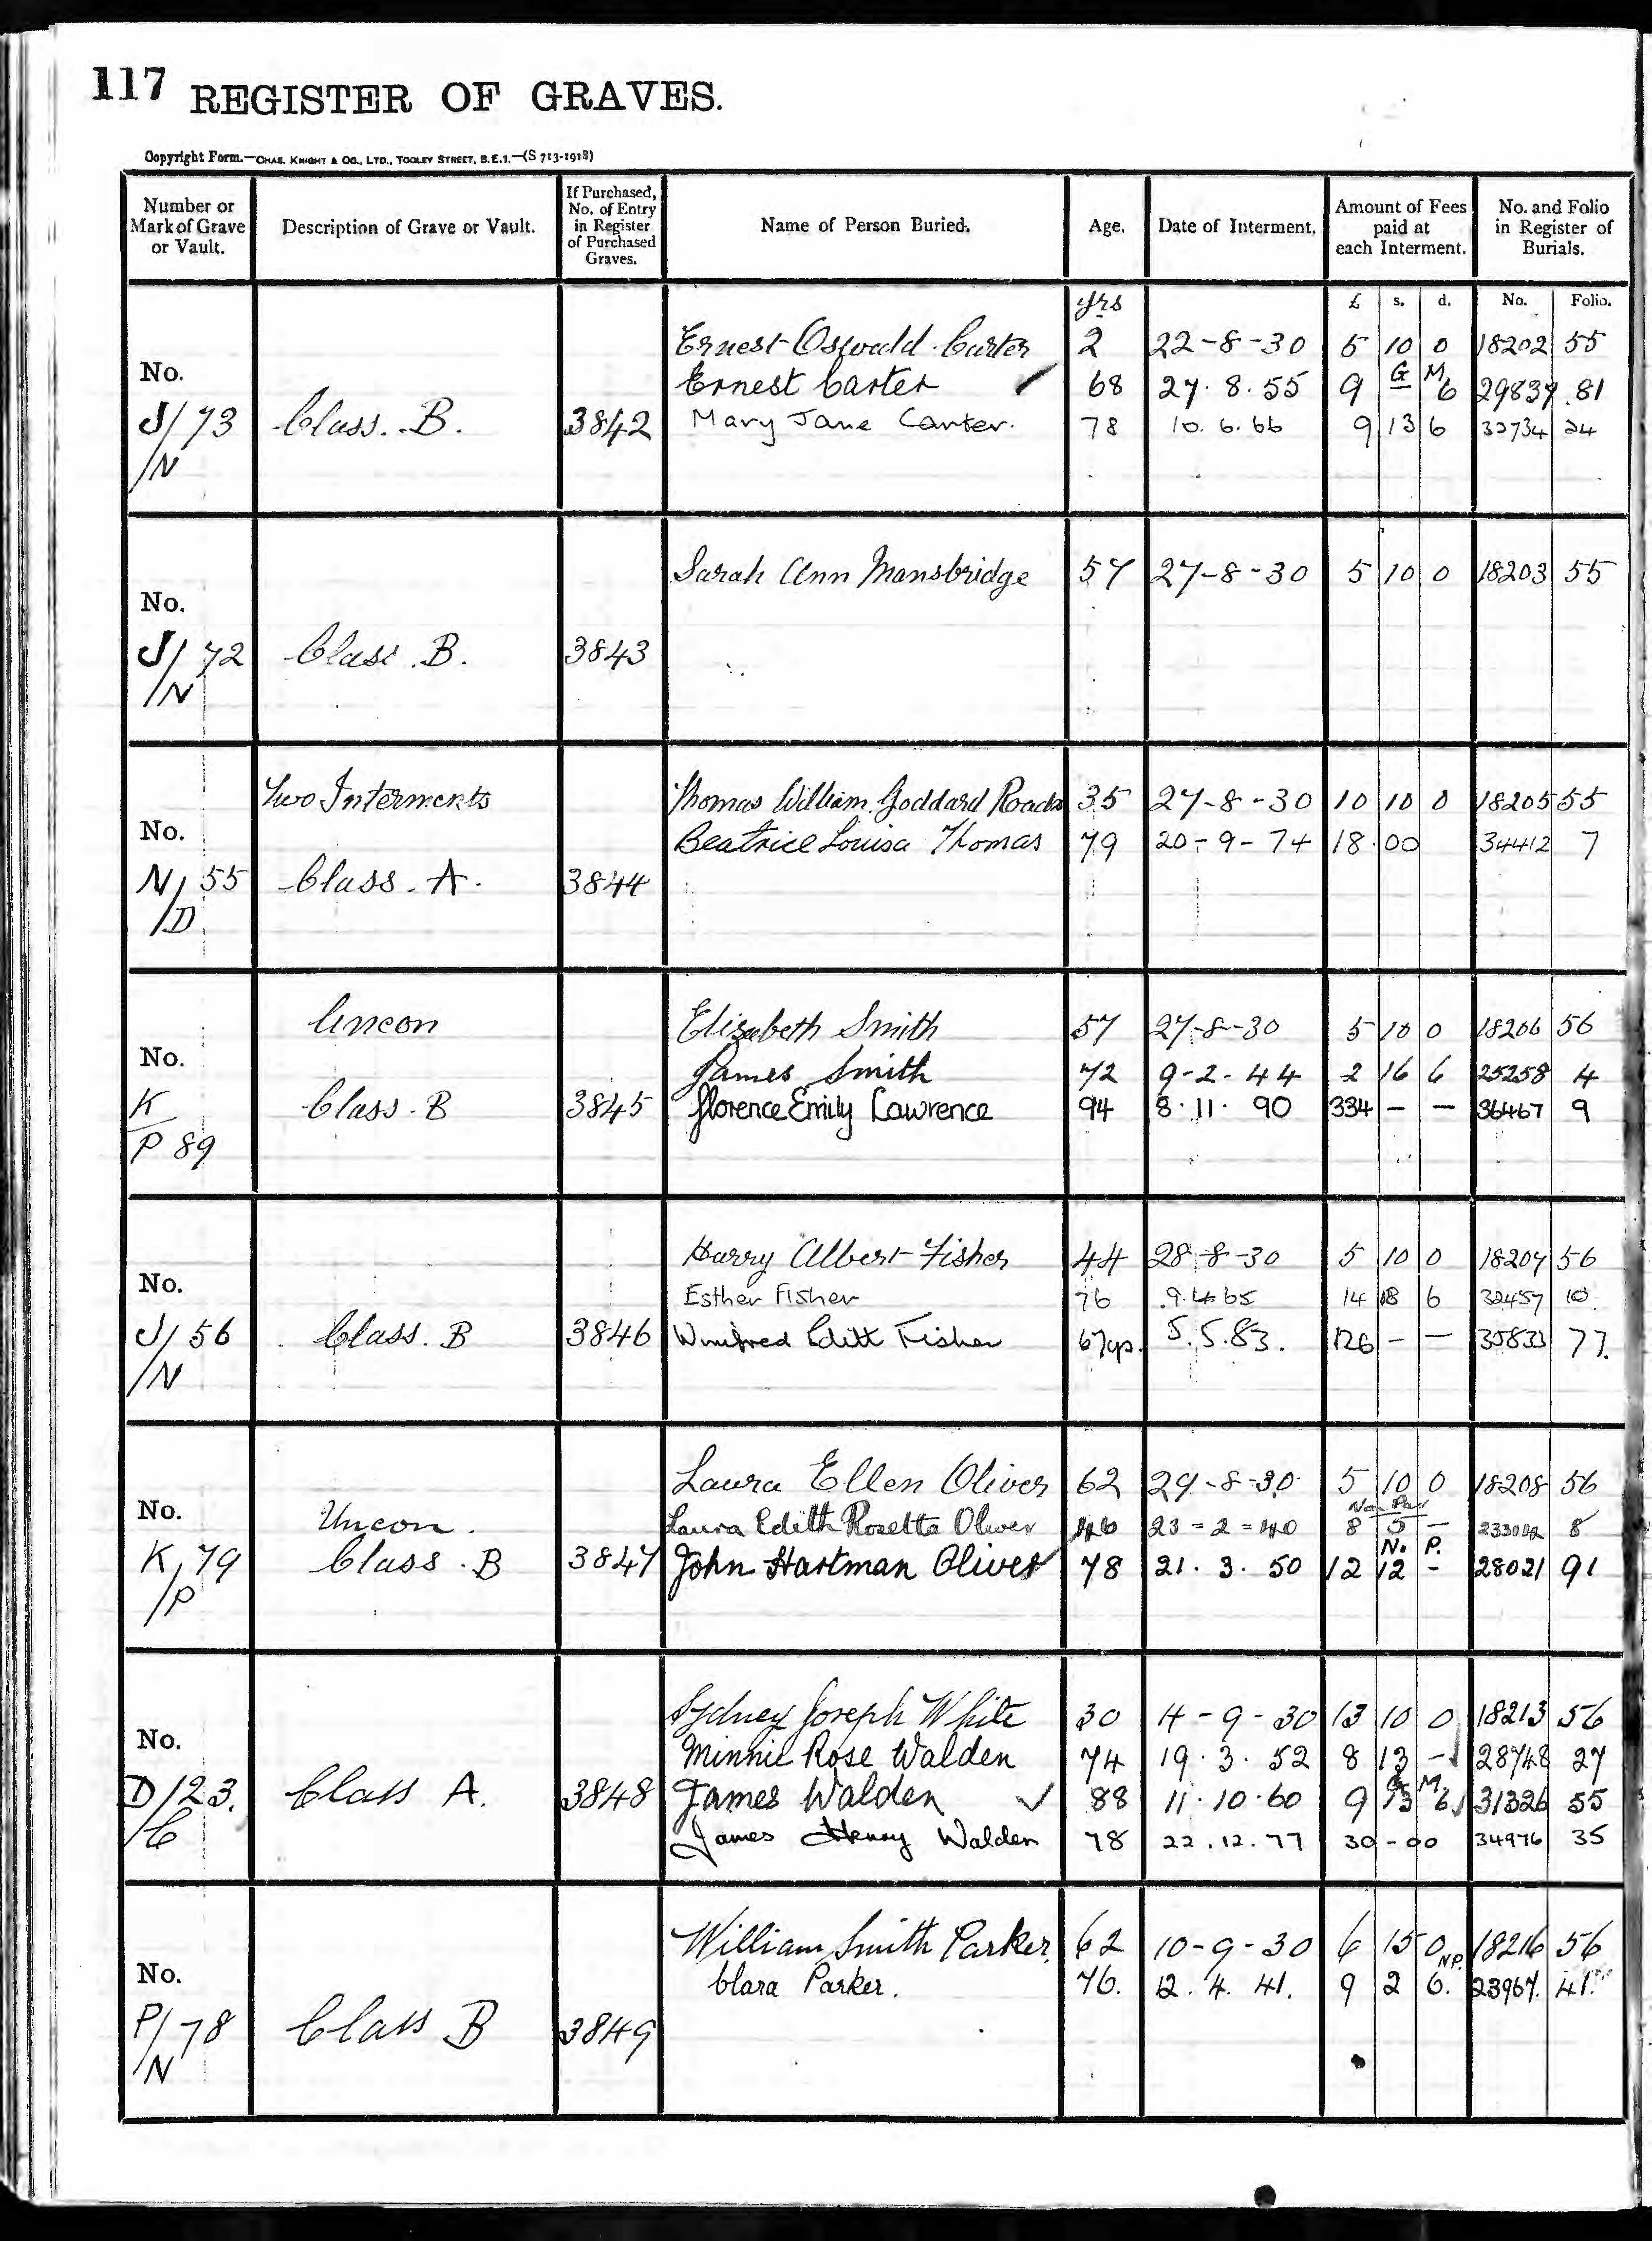 117 REGISTER OF GRAVES.
Copyright Form.—CHAS. KNIGHT & CO., LTD., TOOLEY STREET, S.E.1.—(S 713-1918)
Number or Mark of Grave or Vault.
Description of Grave or Vault.
If Purchased, No. of Entry in Register of Purchased Graves.
Name of Person Buried.
Age.
Date of Interment.
Amount of Fees paid at each Interment.
No. and Folio in Register of Burials.
yrs £ s. d. No. Folio.
Ernest Oswald Carter 2 22-8-30 5 10 0 18202 55
No. Ernest Carter 68 27.8.55 9 G M 6 29837 81
J/73 Class. B. 3842 Mary Jane Carter. 78 10.6.66 9 13 6 32734 24
/N
Sarah Ann Mansbridge 57 27-8-30 5 10 0 18203 55
No.
J/72 Class. B. 3843
/N
Two Interments Thomas William Goddard 35 27-8-30 10 10 0 18205 55
No. Beatrice Louisa Thomas 79 20-9-74 18.00 34412 7
N/55 Class. A. 3844
/D
Uncon Elizabeth Smith 57 27-8-30 5 10 0 18206 56
No. James Smith 72 9-2-44 2 16 6 25258 4
K Class. B 3845 Florence Emily Lawrence 94 8.11.90 334 - - 36467 9
P 89
Harry Albert Fisher 44 28-8-30 5 10 0 18207 56
No. Esther Fisher 76 9.4.65 14 18 6 32457 10
J/56 Class. B 3846 Winifred Edith Fisher 67yrs. 5.5.83. 126 - - 35833 77.
/N
Laura Ellen Oliver 62 29-8-30 5 10 0 18208 56
No. Uncon. Laura Edith Rosetta Oliver 46 23=2=40 8 5 - 8
N. P.
K/79 Class. B 3847 John Hartman Oliver 78 21.3.50 12 12 - 28021 91
/P
Sydney Joseph White 30 4-9-30 13 10 0 18213 56
No. Minnie Rose Walden 74 19.3.52 8 13 - 28748 27
G M.
D/123. Class A. 3848 James Walden ✓ 88 11.10.60 9 13 6 31326 55
/C James Henry Walden 78 22.12.77 30-00 34976 35
William Smith Parker. 62 10-9-30 6 15 0 NP. 18216 56
No. Clara Parker. 76. 12.4.41. 9 2 6. 23967. 41.
P/78 Class B 3849
/N